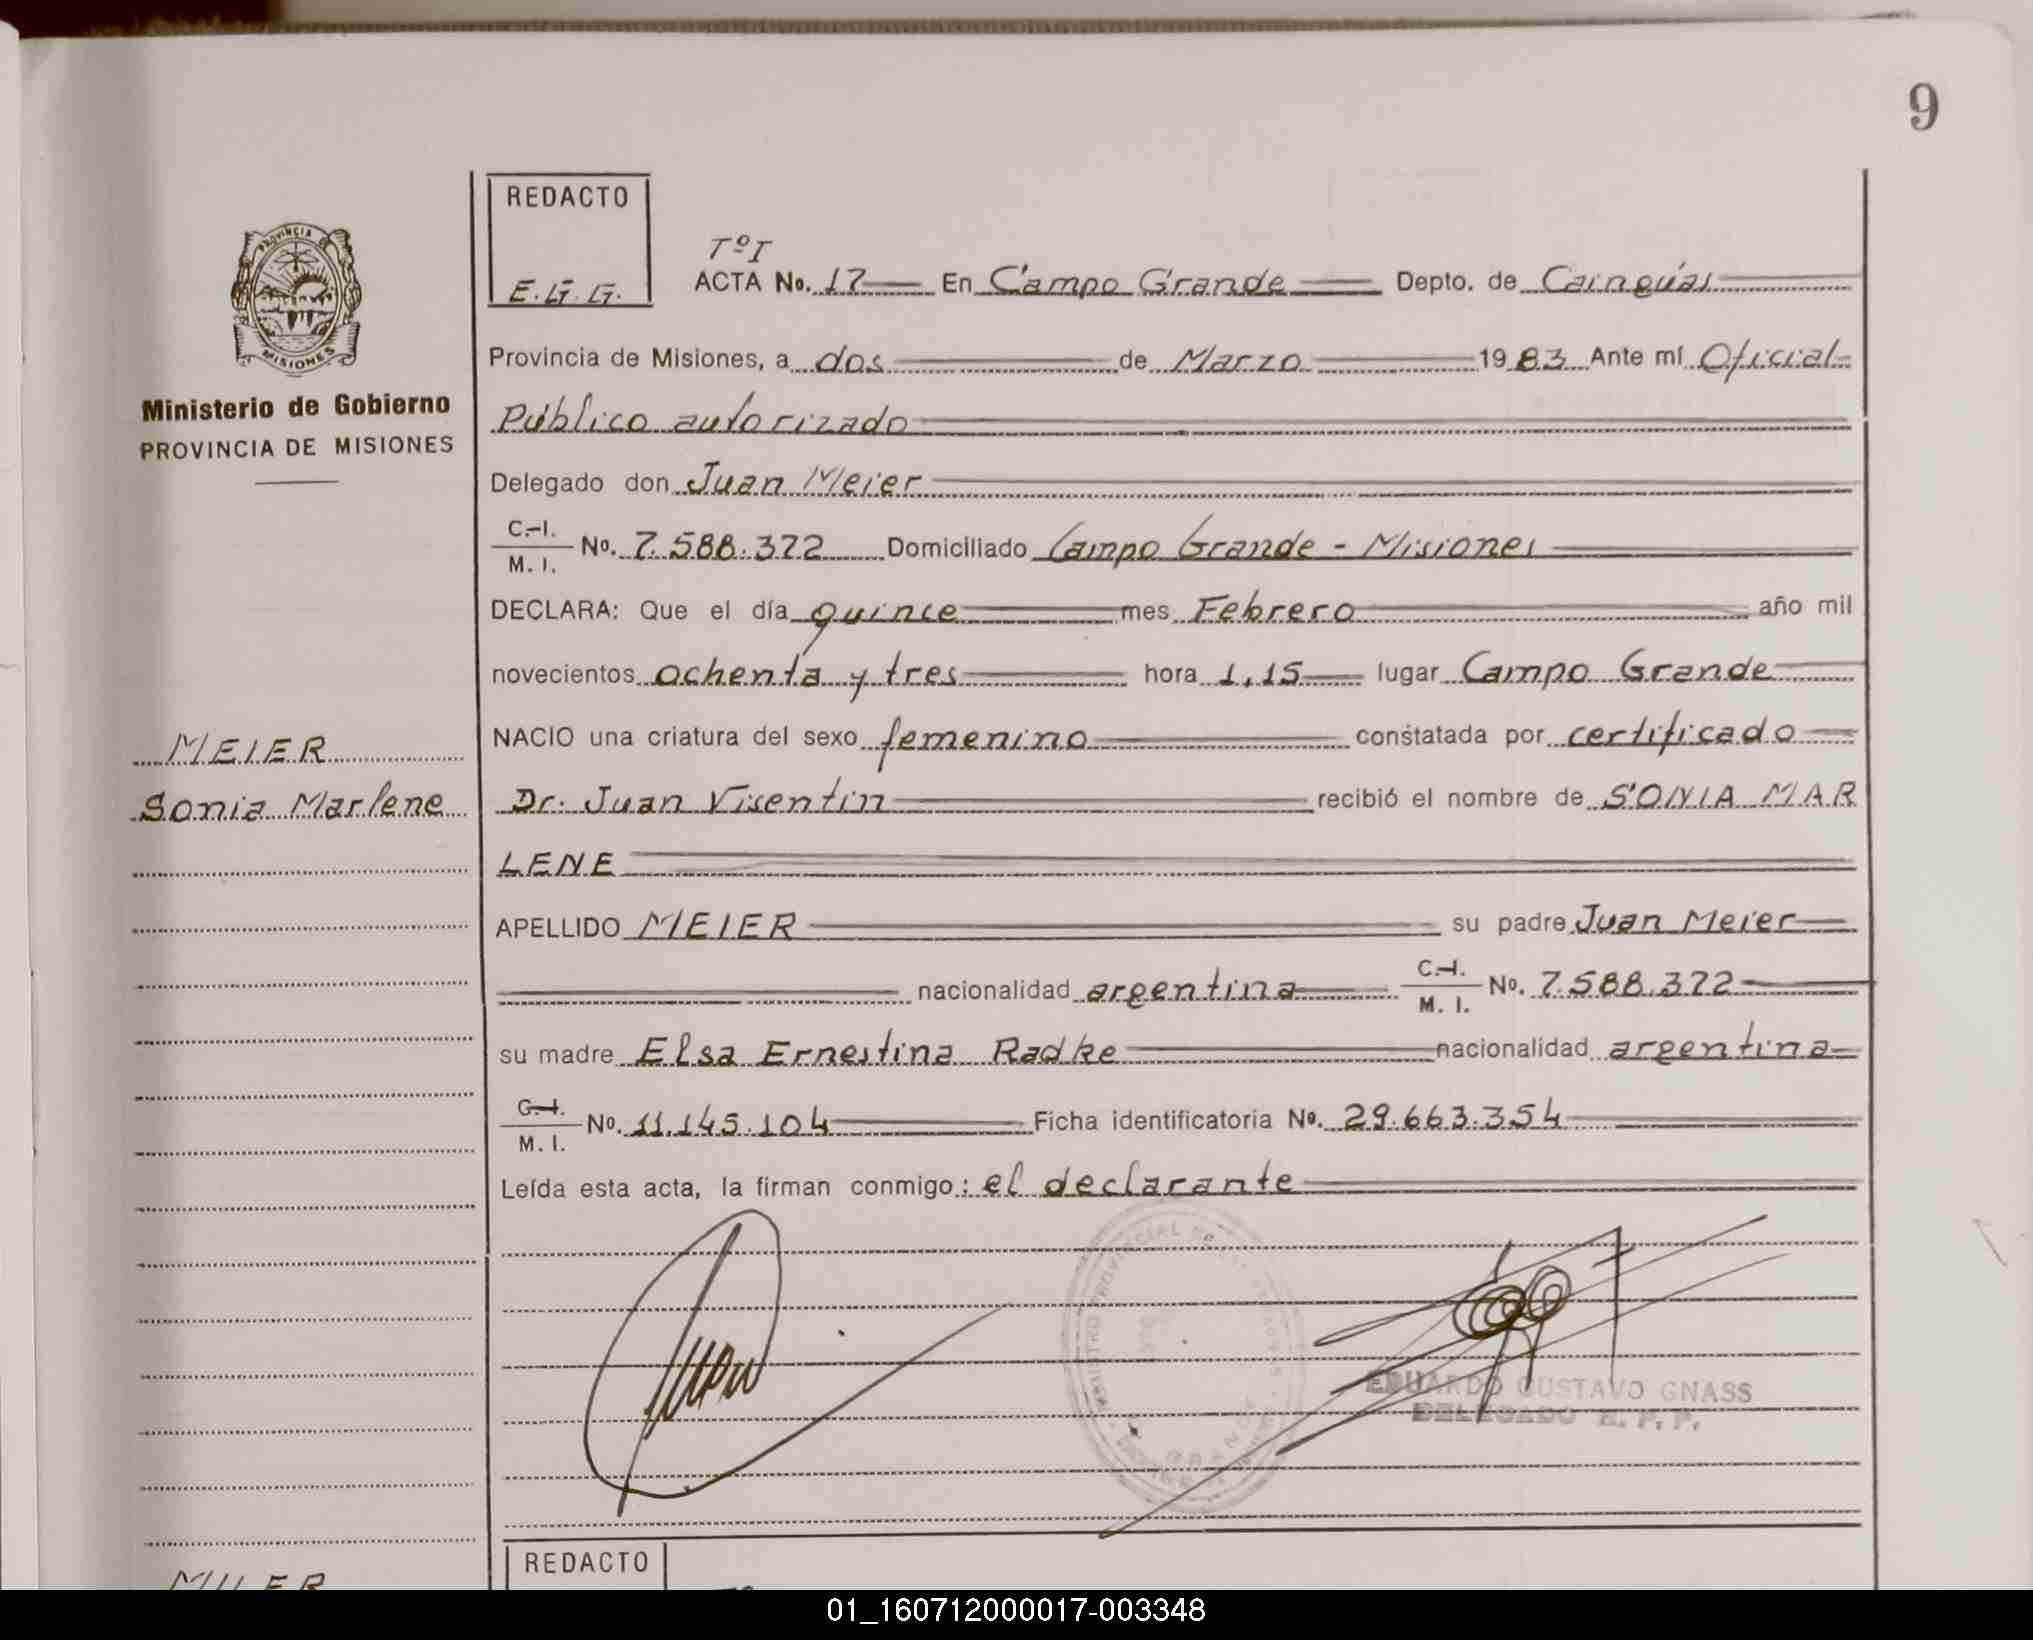 9
REDACTO
E.G.G.
TºI
ACTA No. 17 En Campo Grande Depto. de Cainguás
Provincia de Misiones, a dos de Marzo 1983 Ante mí Oficial
Público autorizado
Delegado don Juan Meier
C.I. M.I. No. 7.588.372 Domiciliado Campo Grande - Misiones
DECLARA: Que el día quince mes Febrero año mil
novecientos ochenta y tres hora 1,15 lugar Campo Grande
NACIO una criatura del sexo femenino constatada por certificado
Dr. Juan Visentin recibió el nombre de SONIA MAR
LENE
APELLIDO MEIER su padre Juan Meier
nacionalidad argentina C.I. M.I. No. 7.588.372
su madre Elsa Ernestina Radke nacionalidad argentina
C.I. M.I. No. 11.145.104 Ficha identificatoria No. 29.663.354
Leída esta acta, la firman conmigo: el declarante
EDUARDO GUSTAVO GNASS
DELEGADO R. P. P.
PROVINCIA DE
MISIONES
Ministerio de Gobierno
PROVINCIA DE MISIONES
MEIER
Sonia Marlene
REDACTO
01_160712000017-003348